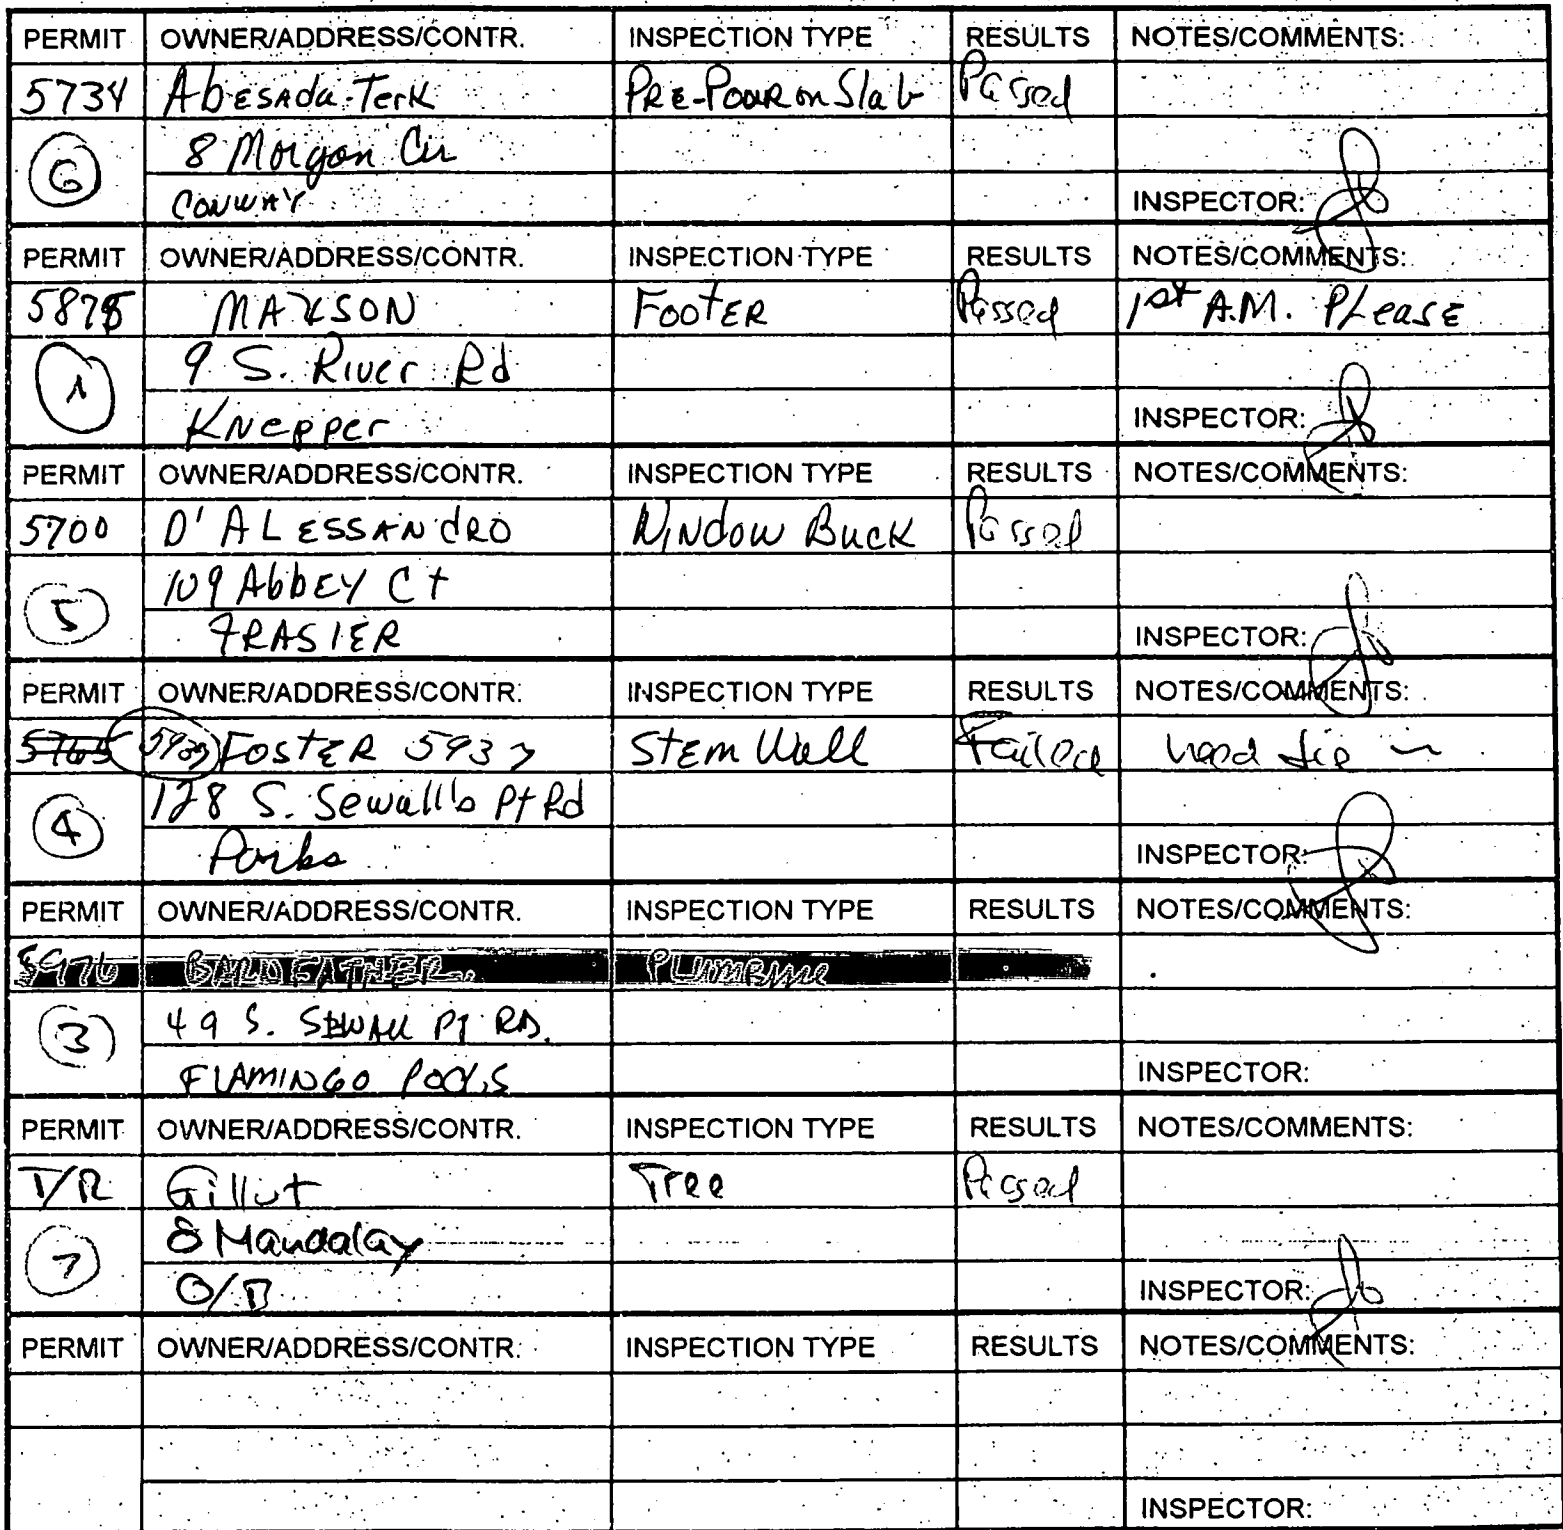 PERMIT OWNER/ADDRESS/CONTR. INSPECTION TYPE RESULTS NOTES/COMMENTS:
5734 Abesada-Terk PRE-POUR on Slab Passed
6 8 Morgan Cir
CONWAY INSPECTOR:
PERMIT OWNER/ADDRESS/CONTR. INSPECTION TYPE RESULTS NOTES/COMMENTS:
5875 FOOTER Passed 1st A.M. Please
1 9 S. River Rd
Knepper INSPECTOR:
PERMIT OWNER/ADDRESS/CONTR. INSPECTION TYPE RESULTS NOTES/COMMENTS:
5700 D'ALESSANdRO Window Buck Passed
5 109 AbbEY Ct
FRASIER INSPECTOR:
PERMIT OWNER/ADDRESS/CONTR. INSPECTION TYPE RESULTS NOTES/COMMENTS:
5765 5937 FOSTER 5937 STEM Wall Failed need tie
4 128 S. Sewall's Pt Rd
Parks INSPECTOR:
PERMIT OWNER/ADDRESS/CONTR. INSPECTION TYPE RESULTS NOTES/COMMENTS:
5976 PLUMBING
3 49 S. SEWALL PT RD.
FLAMINGO POOLS INSPECTOR:
PERMIT OWNER/ADDRESS/CONTR. INSPECTION TYPE RESULTS NOTES/COMMENTS:
T/R Tree Passed
7 8 Mandalay
O/B INSPECTOR:
PERMIT OWNER/ADDRESS/CONTR. INSPECTION TYPE RESULTS NOTES/COMMENTS:
INSPECTOR: